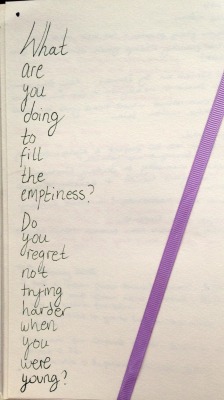 What
are
you
doing
to
fill
the
emptiness?
Do
you
regret
not
trying
harder
when
you
were
young?